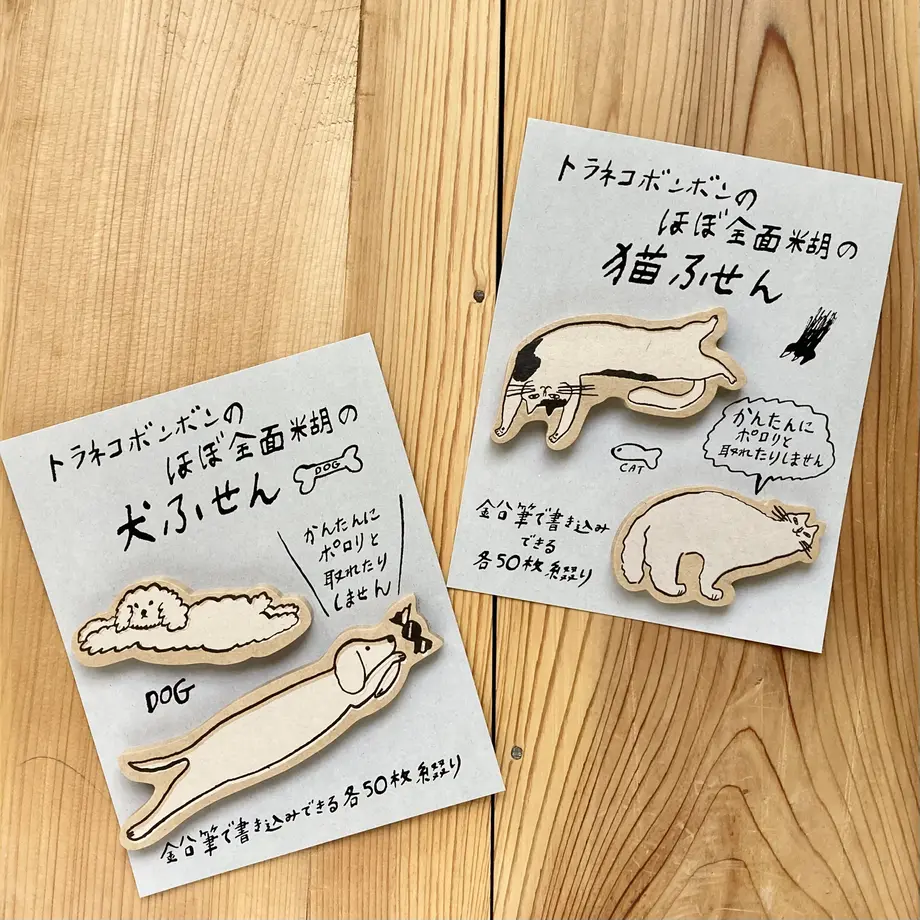 トラネコボンボンの
ほぼ全面糊の
猫ふせん
かんたんに
ポロリと
取れたりしません
CAT
鉛筆で書き込み
できる
各50枚綴り
トラネコボンボンの
ほぼ全面糊の
犬ふせん
DOG
かんたんに
ポロリと
取れたり
しません
DOG
鉛筆で書き込みできる各50枚綴り